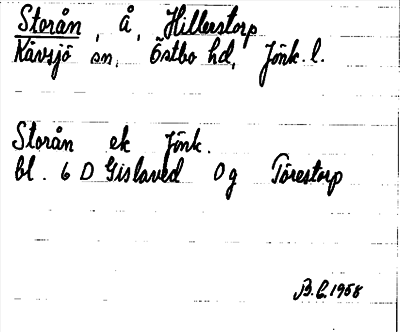 Storån, å, Hillerstorp
Kävsjö sn, Östbo hd, Jönk. l.
Storån ek Jönk.
bl. 6 D Gislaved 0g Törestorp
B.C. 1958